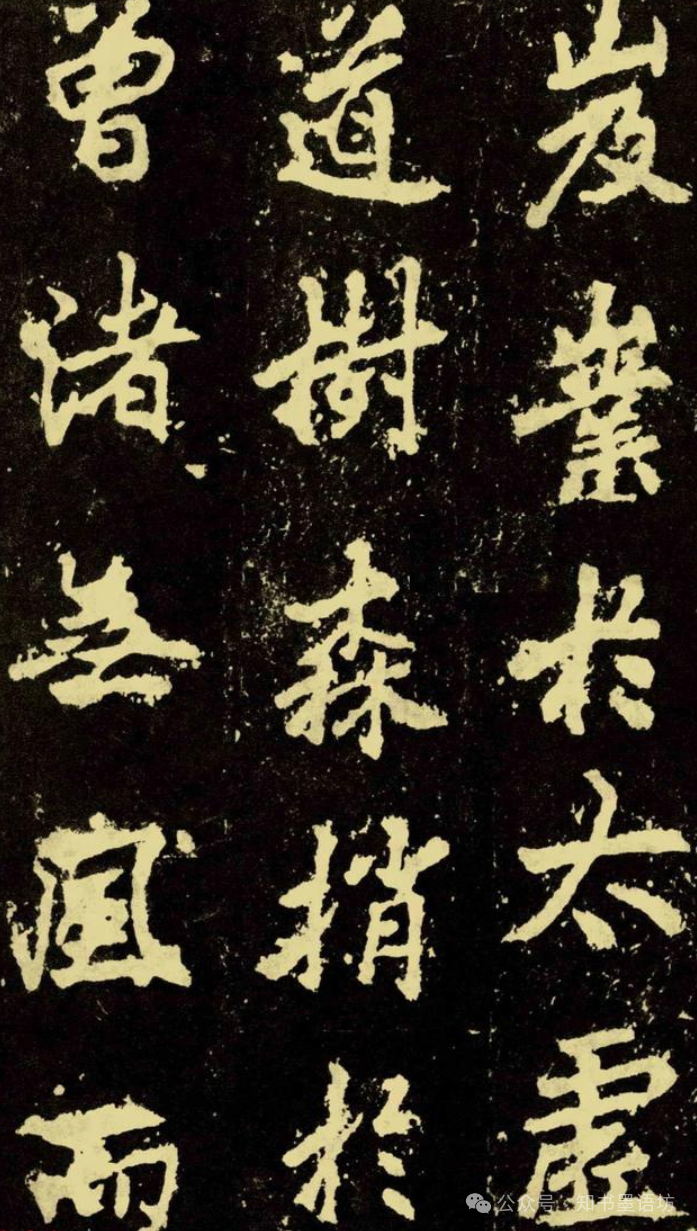 岌嶪於太虛
道樹森梢於
曾渚無風而
公众号 · 知书墨语坊